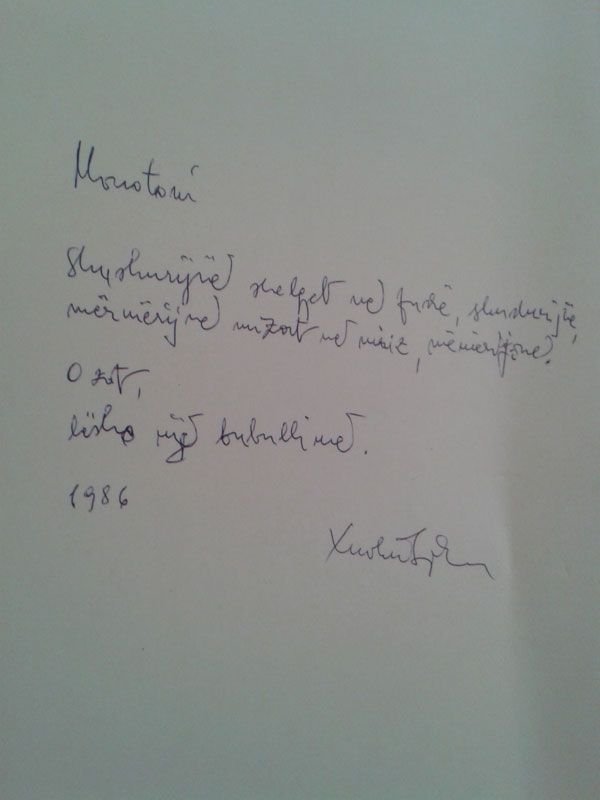 Monotoni
Shushurijnë shelgjet në fushë, shushurijnë,
mërmërijnë mizat në mriz, mërmërijnë.
O zot,
lësho një bubullimë.
1986